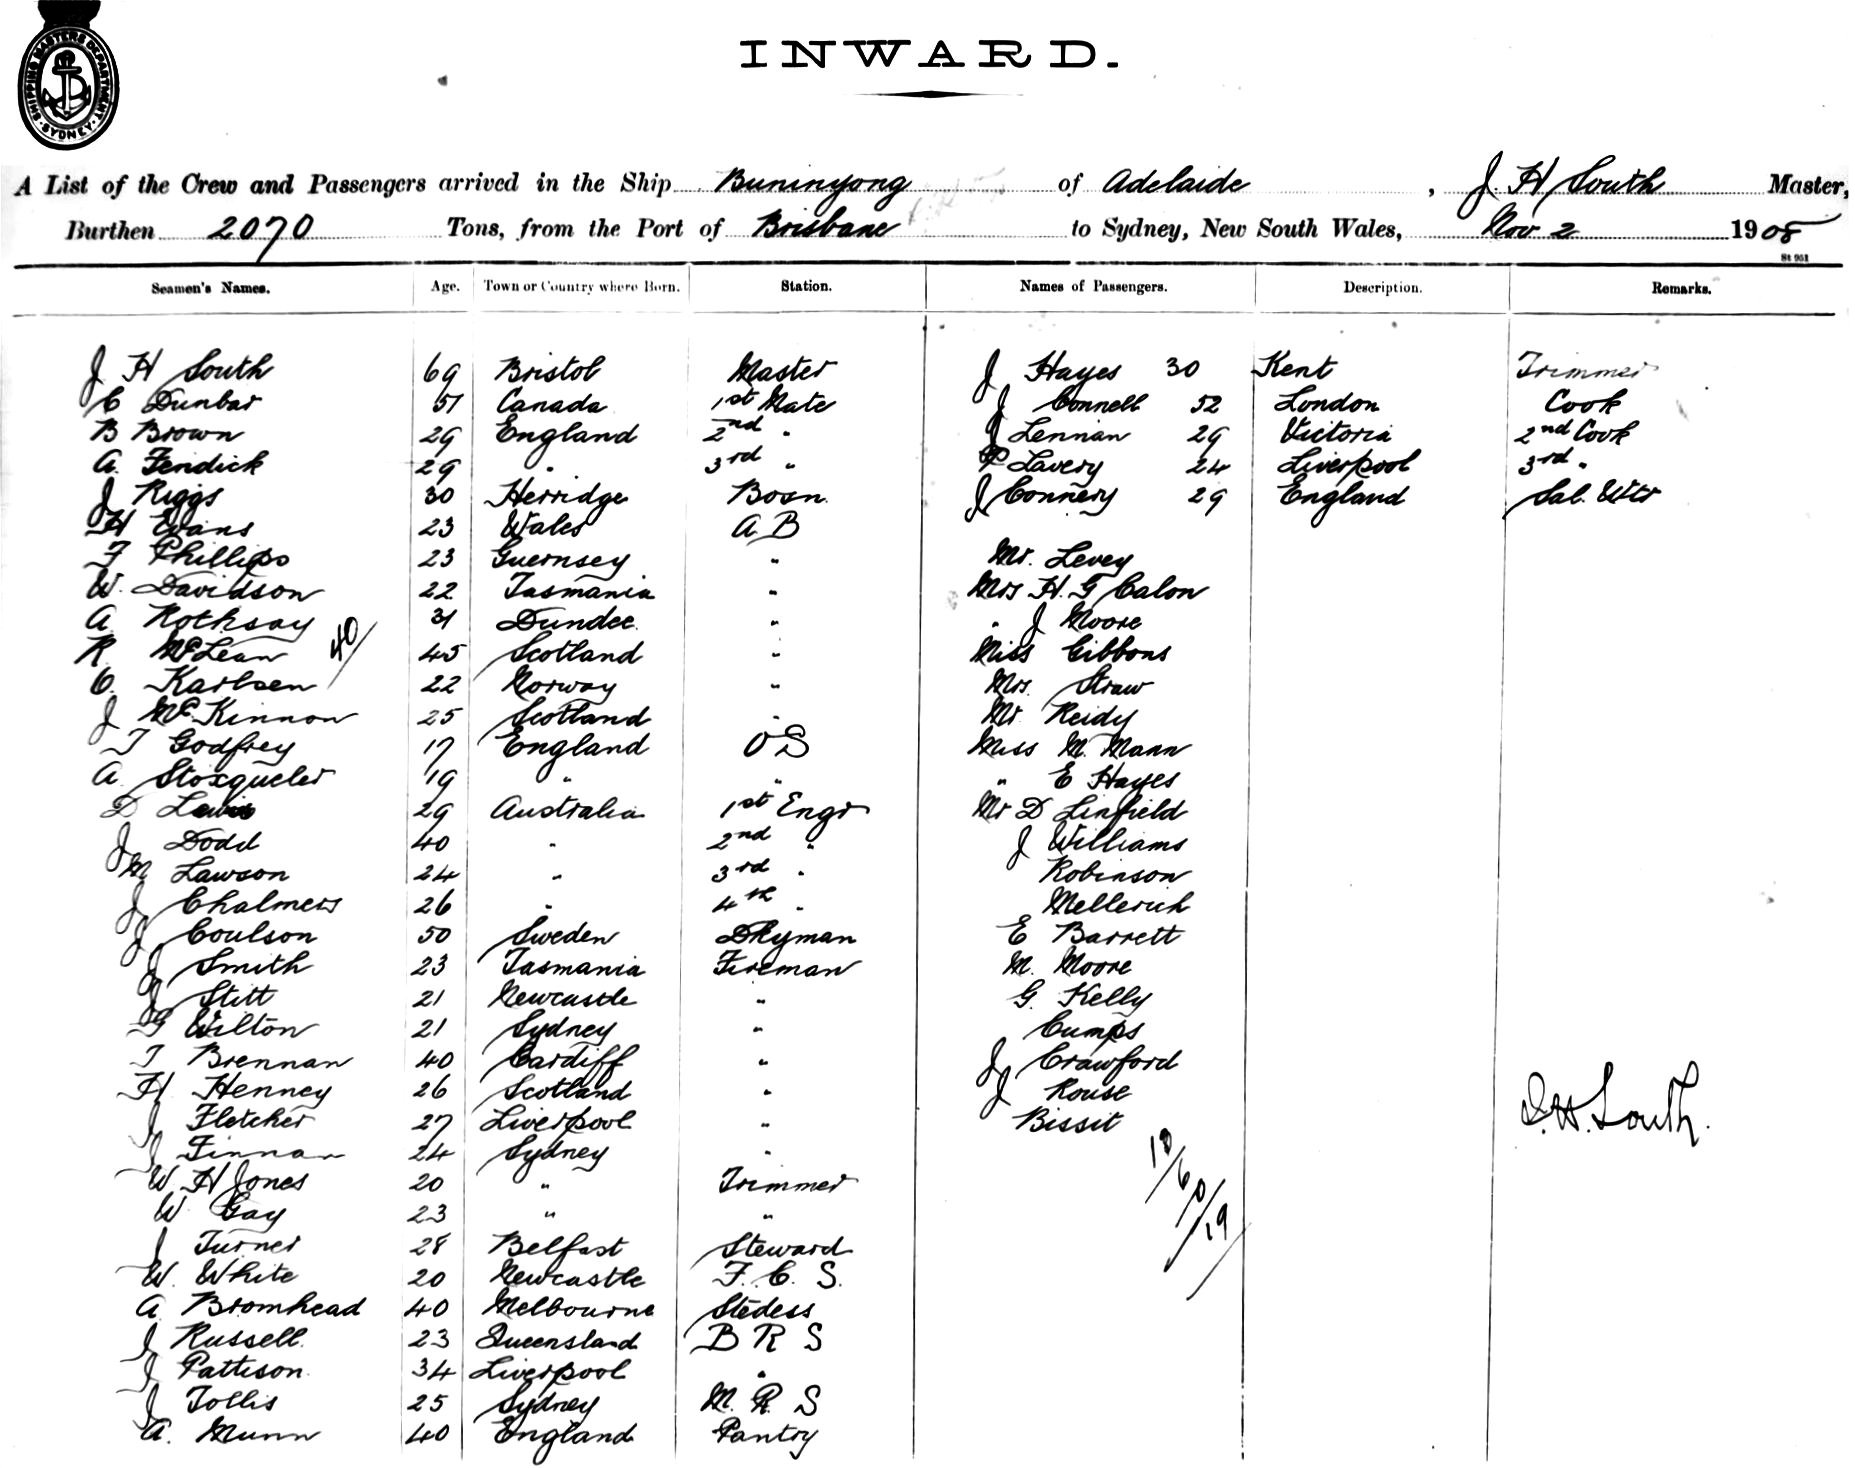 SHIPPING MASTERS DEPARTMENT. SYDNEY.
INWARD.
A List of the Crew and Passengers arrived in the Ship Buninyong of Adelaide, J. H South Master,
Burthen 2070 Tons, from the Port of Brisbane to Sydney, New South Wales, Nov 2 1908
St 951
Seamen's Names. Age. Town or Country where Born. Station. Names of Passengers. Description. Remarks.
J H South 69 Bristol Master J Hayes 30 Kent Trimmer
C Dunbar 51 Canada 1st Mate J Connell 52 London Cook
B Brown 29 England 2nd " J Lennan 29 Victoria 2nd Cook
A. Fendick 29 " 3rd " P Lavery 24 Liverpool 3rd "
J Riggs 30 Herridge Bosn. J Connery 29 England Sal. Wtr
H Evans 23 Wales A B
F Phillips 23 Guernsey " Mr. Levey
W. Davidson 22 Tasmania " Mrs H. G Calon
A Rothsay 31 Dundee " " J Moore
R McLean 45 Scotland " Miss Gibbons
40
C. Karlsen 22 Norway " Mrs. Straw
J McKinnon 25 Scotland " Mr Reidy
T Godfrey 17 England O S Miss M. Mann
A Stoxqueler 19 " " " E Hayes
D Lewis 29 Australia 1st Engr Mr D Linfield
J Dodd 40 " 2nd " J Williams
M Lawson 24 " 3rd " Robinson
J Chalmers 26 " 4th " Mellerich
J Coulson 50 Sweden Dkyman E Barrett
J Smith 23 Tasmania Fireman M. Moore
J Stitt 21 Newcastle " G. Kelly
G Wilton 21 Sydney " Cumps
T Brennan 40 Cardiff " J Crawford
H Henney 26 Scotland " J Rouse
J Fletcher 27 Liverpool " Bissit J.H. South.
J Finnan 24 Sydney "
W H Jones 20 " Trimmer
W Gay 23 " "
J Turner 28 Belfast Steward
W. White 20 Newcastle F. C. S.
A Bromhead 40 Melbourne Stedess
J Russell. 23 Queensland B R S
J Pattison 34 Liverpool "
J Tollis 25 Sydney M. R. S
A. Munn 40 England Pantry